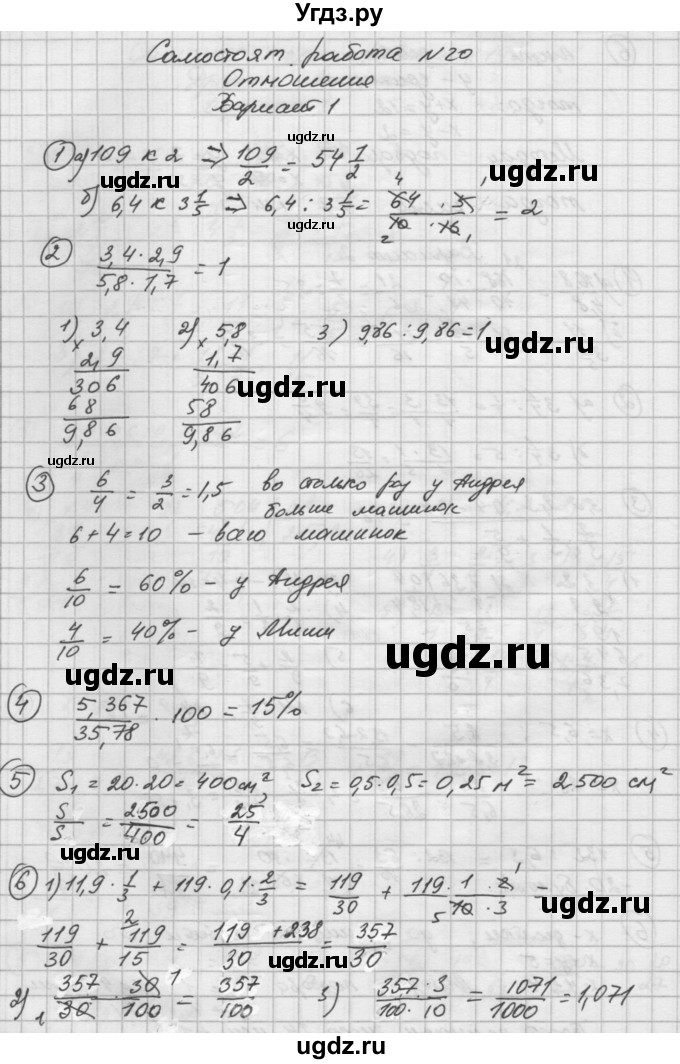 Угдз.ру
Самостоят. работа N20
Отношение
Вариант 1
ugdz.ru
① а) 109 к 2 ⇒ 109/2 = 54 1/2
ugdz.ru
ugdz.ru
б) 6,4 к 3 1/5 ⇒ 6,4 : 3 1/5 = 64 · 5 / 10 · 16 = 2
ugdz.ru
② 3,4 · 2,9 / 5,8 · 1,7 = 1
1) × 3,4   2) × 5,8   3) 9,86 : 9,86 = 1
2,9   1,7
ugdz.ru
306   406
ugdz.ru
68   58
9,86   9,86
ugdz.ru
③ 6/4 = 3/2 = 1,5 во столько раз у Андрея
больше машинок
6 + 4 = 10 – всего машинок
6/10 = 60% – у Андрея
4/10 = 40% – у Миши
ugdz.ru
ugdz.ru
④ 5,367/35,78 · 100 = 15%
⑤ S₁ = 20 · 20 = 400 см², S₂ = 0,5 · 0,5 = 0,25 м² = 2500 см²
S/S = 2500/400 = 25/4
ugdz.ru
⑥ 1) 11,9 · 1/3 + 119 · 0,1 · 2/3 = 119/30 + 119 · 1 · 2 / 10 · 3 =
ugdz.ru
119/30 + 119/15 = 119 + 238 / 30 = 357/30
ugdz.ru
2) 357/30 · 30/100 = 357/100   3) 357 · 3 / 100 · 10 = 1071/1000 = 1,071
ugdz.ru